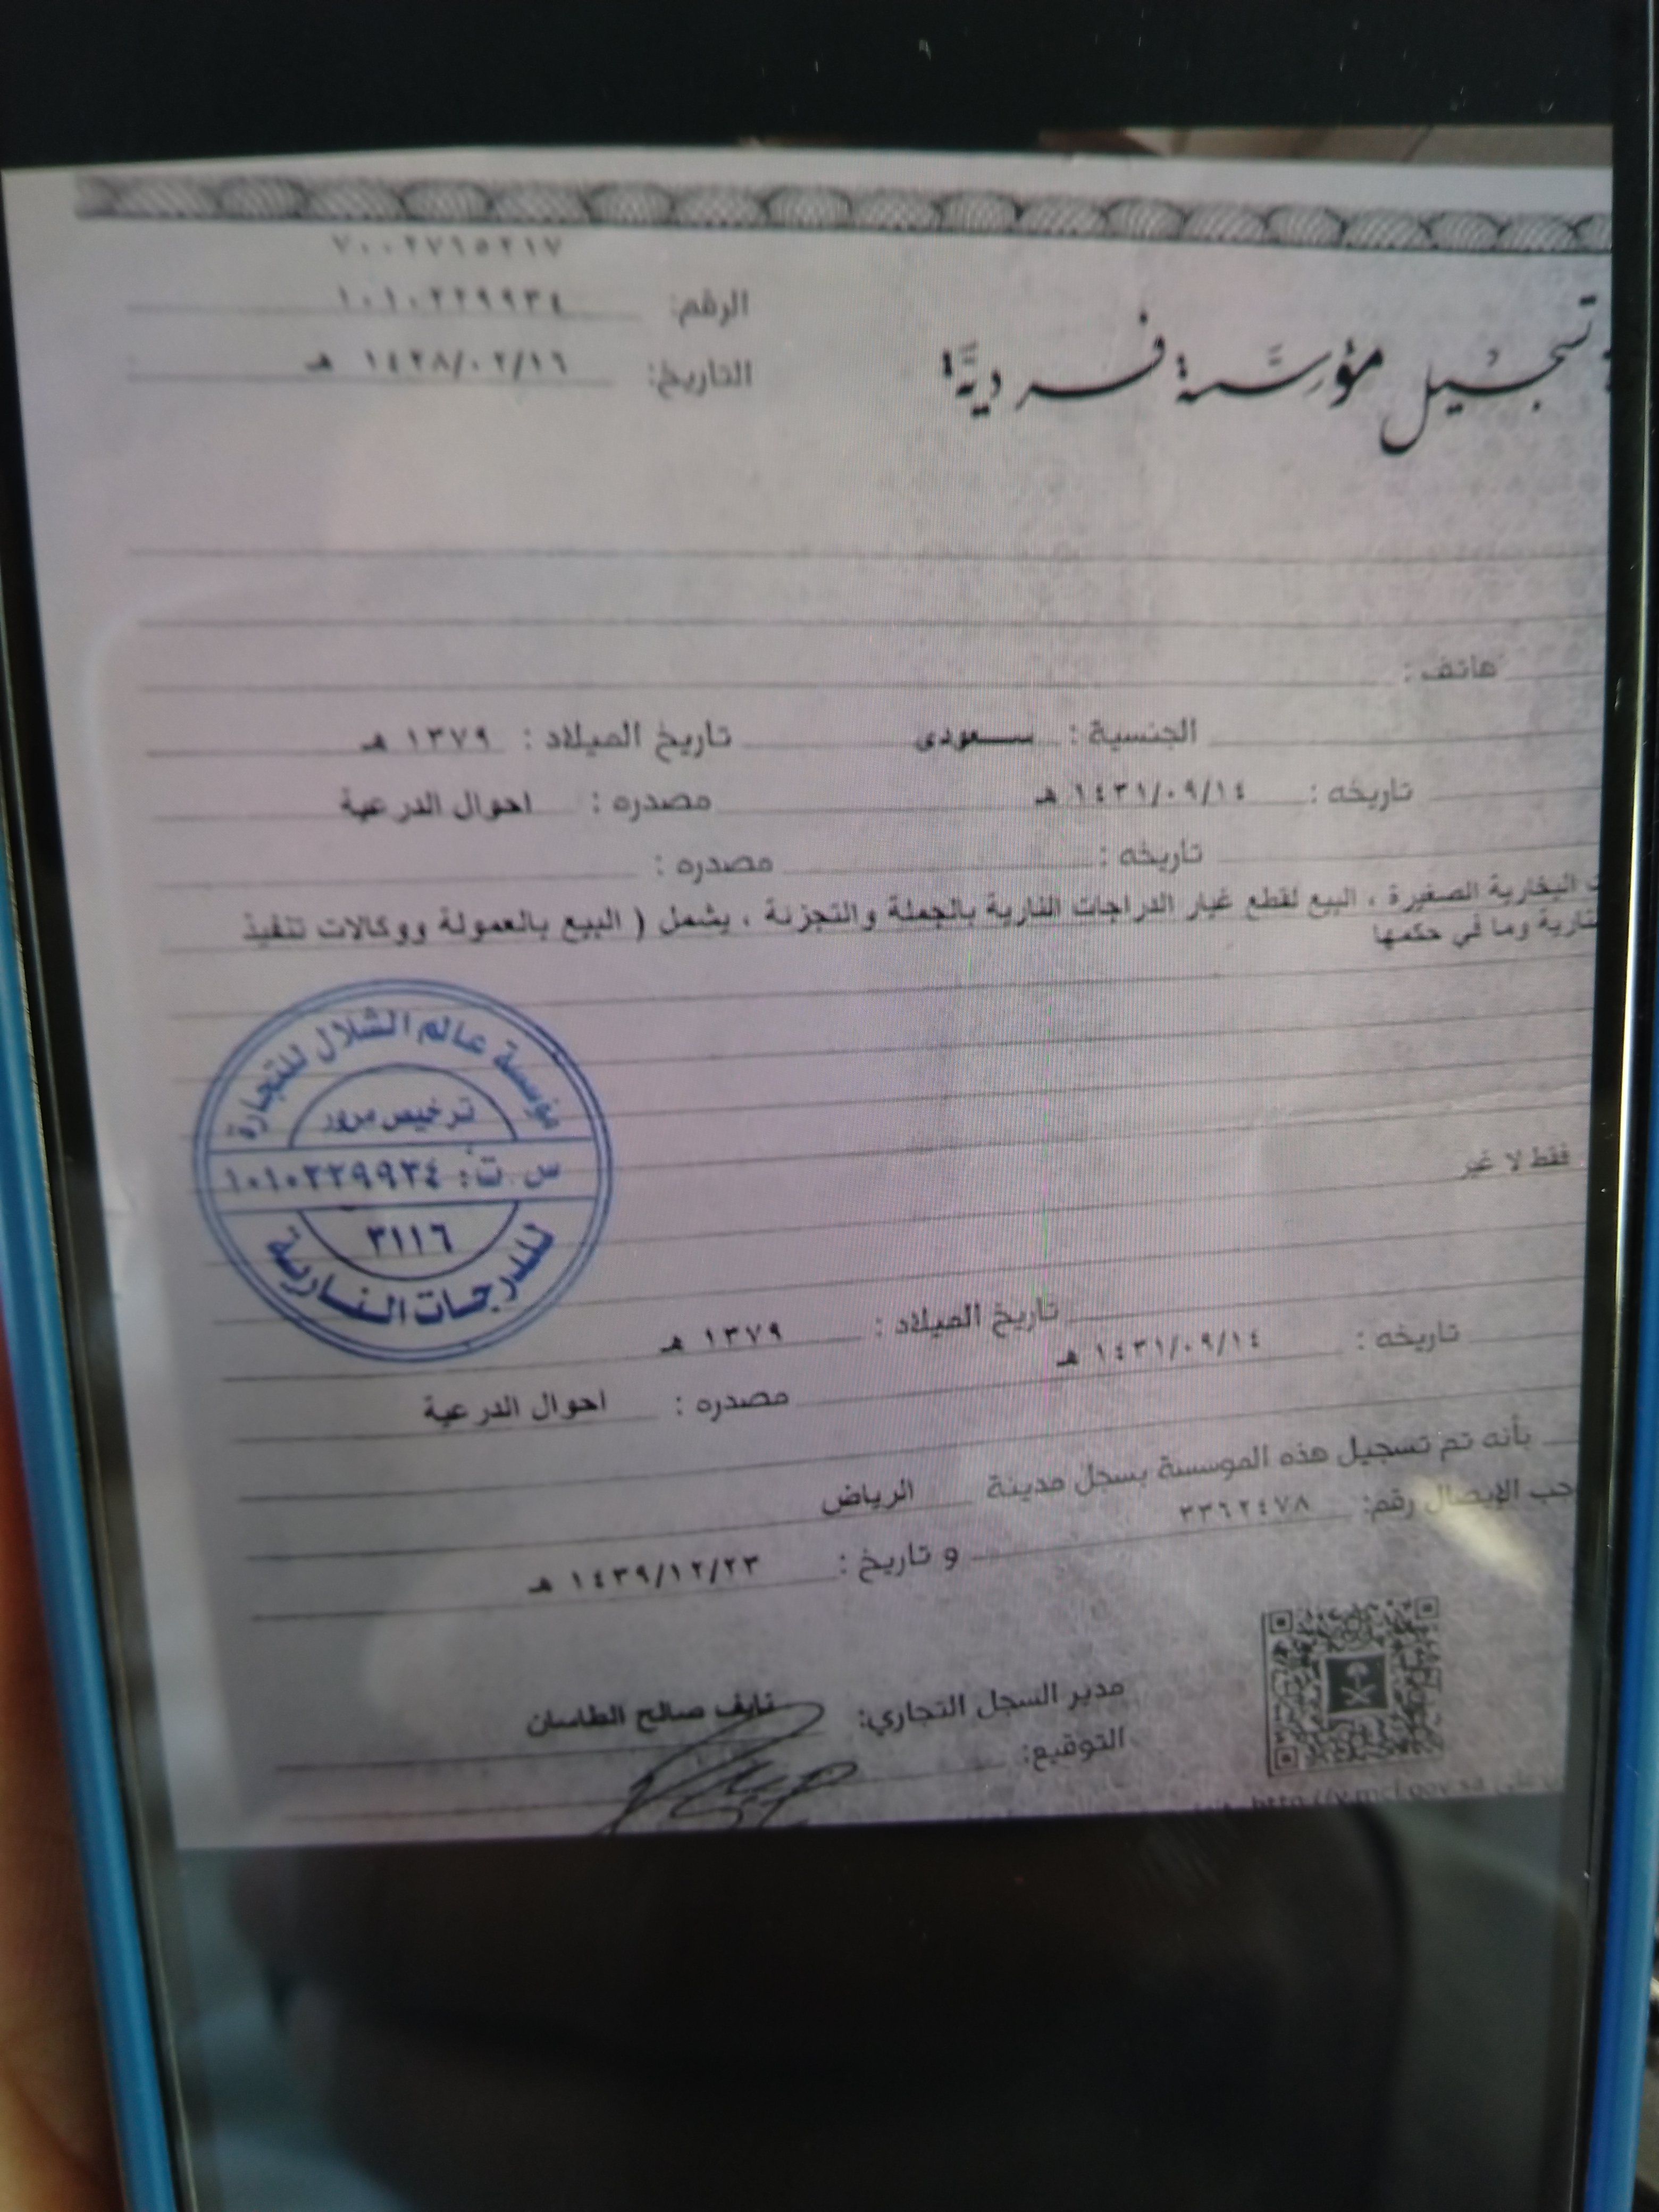 ٧٠٠٢٧١٥٢١٧
الرقم: ١٠١٠٢٢٩٩٣٤
تسجيل مؤسسة فردية
التاريخ: ١٤٢٨/٠٢/١٦ هـ
هاتف :
الجنسية : سعودى تاريخ الميلاد : ١٣٧٩ هـ
تاريخه : ١٤٣١/٠٩/١٤ هـ مصدره : احوال الدرعية
تاريخه : مصدره :
البخارية الصغيرة ، البيع لقطع غيار الدراجات النارية بالجملة والتجزئة ، يشمل ( البيع بالعمولة ووكالات تنفيذ
وما في حكمها
مؤسسة عالم الشلال للتجارة
ترخيص مرور
س ت: ١٠١٠٢٢٩٩٣٤
٣١١٦
للدرجات النارية
فقط لا غير
تاريخ الميلاد : ١٣٧٩ هـ
تاريخه : ١٤٣١/٠٩/١٤ هـ
مصدره : احوال الدرعية
بأنه تم تسجيل هذه الموسسة بسجل مدينة الرياض
الإيصال رقم: ٣٣٦٢٤٧٨
و تاريخ : ١٤٣٩/١٢/٢٣ هـ
مدير السجل التجاري: نايف صالح الطاسان
التوقيع: